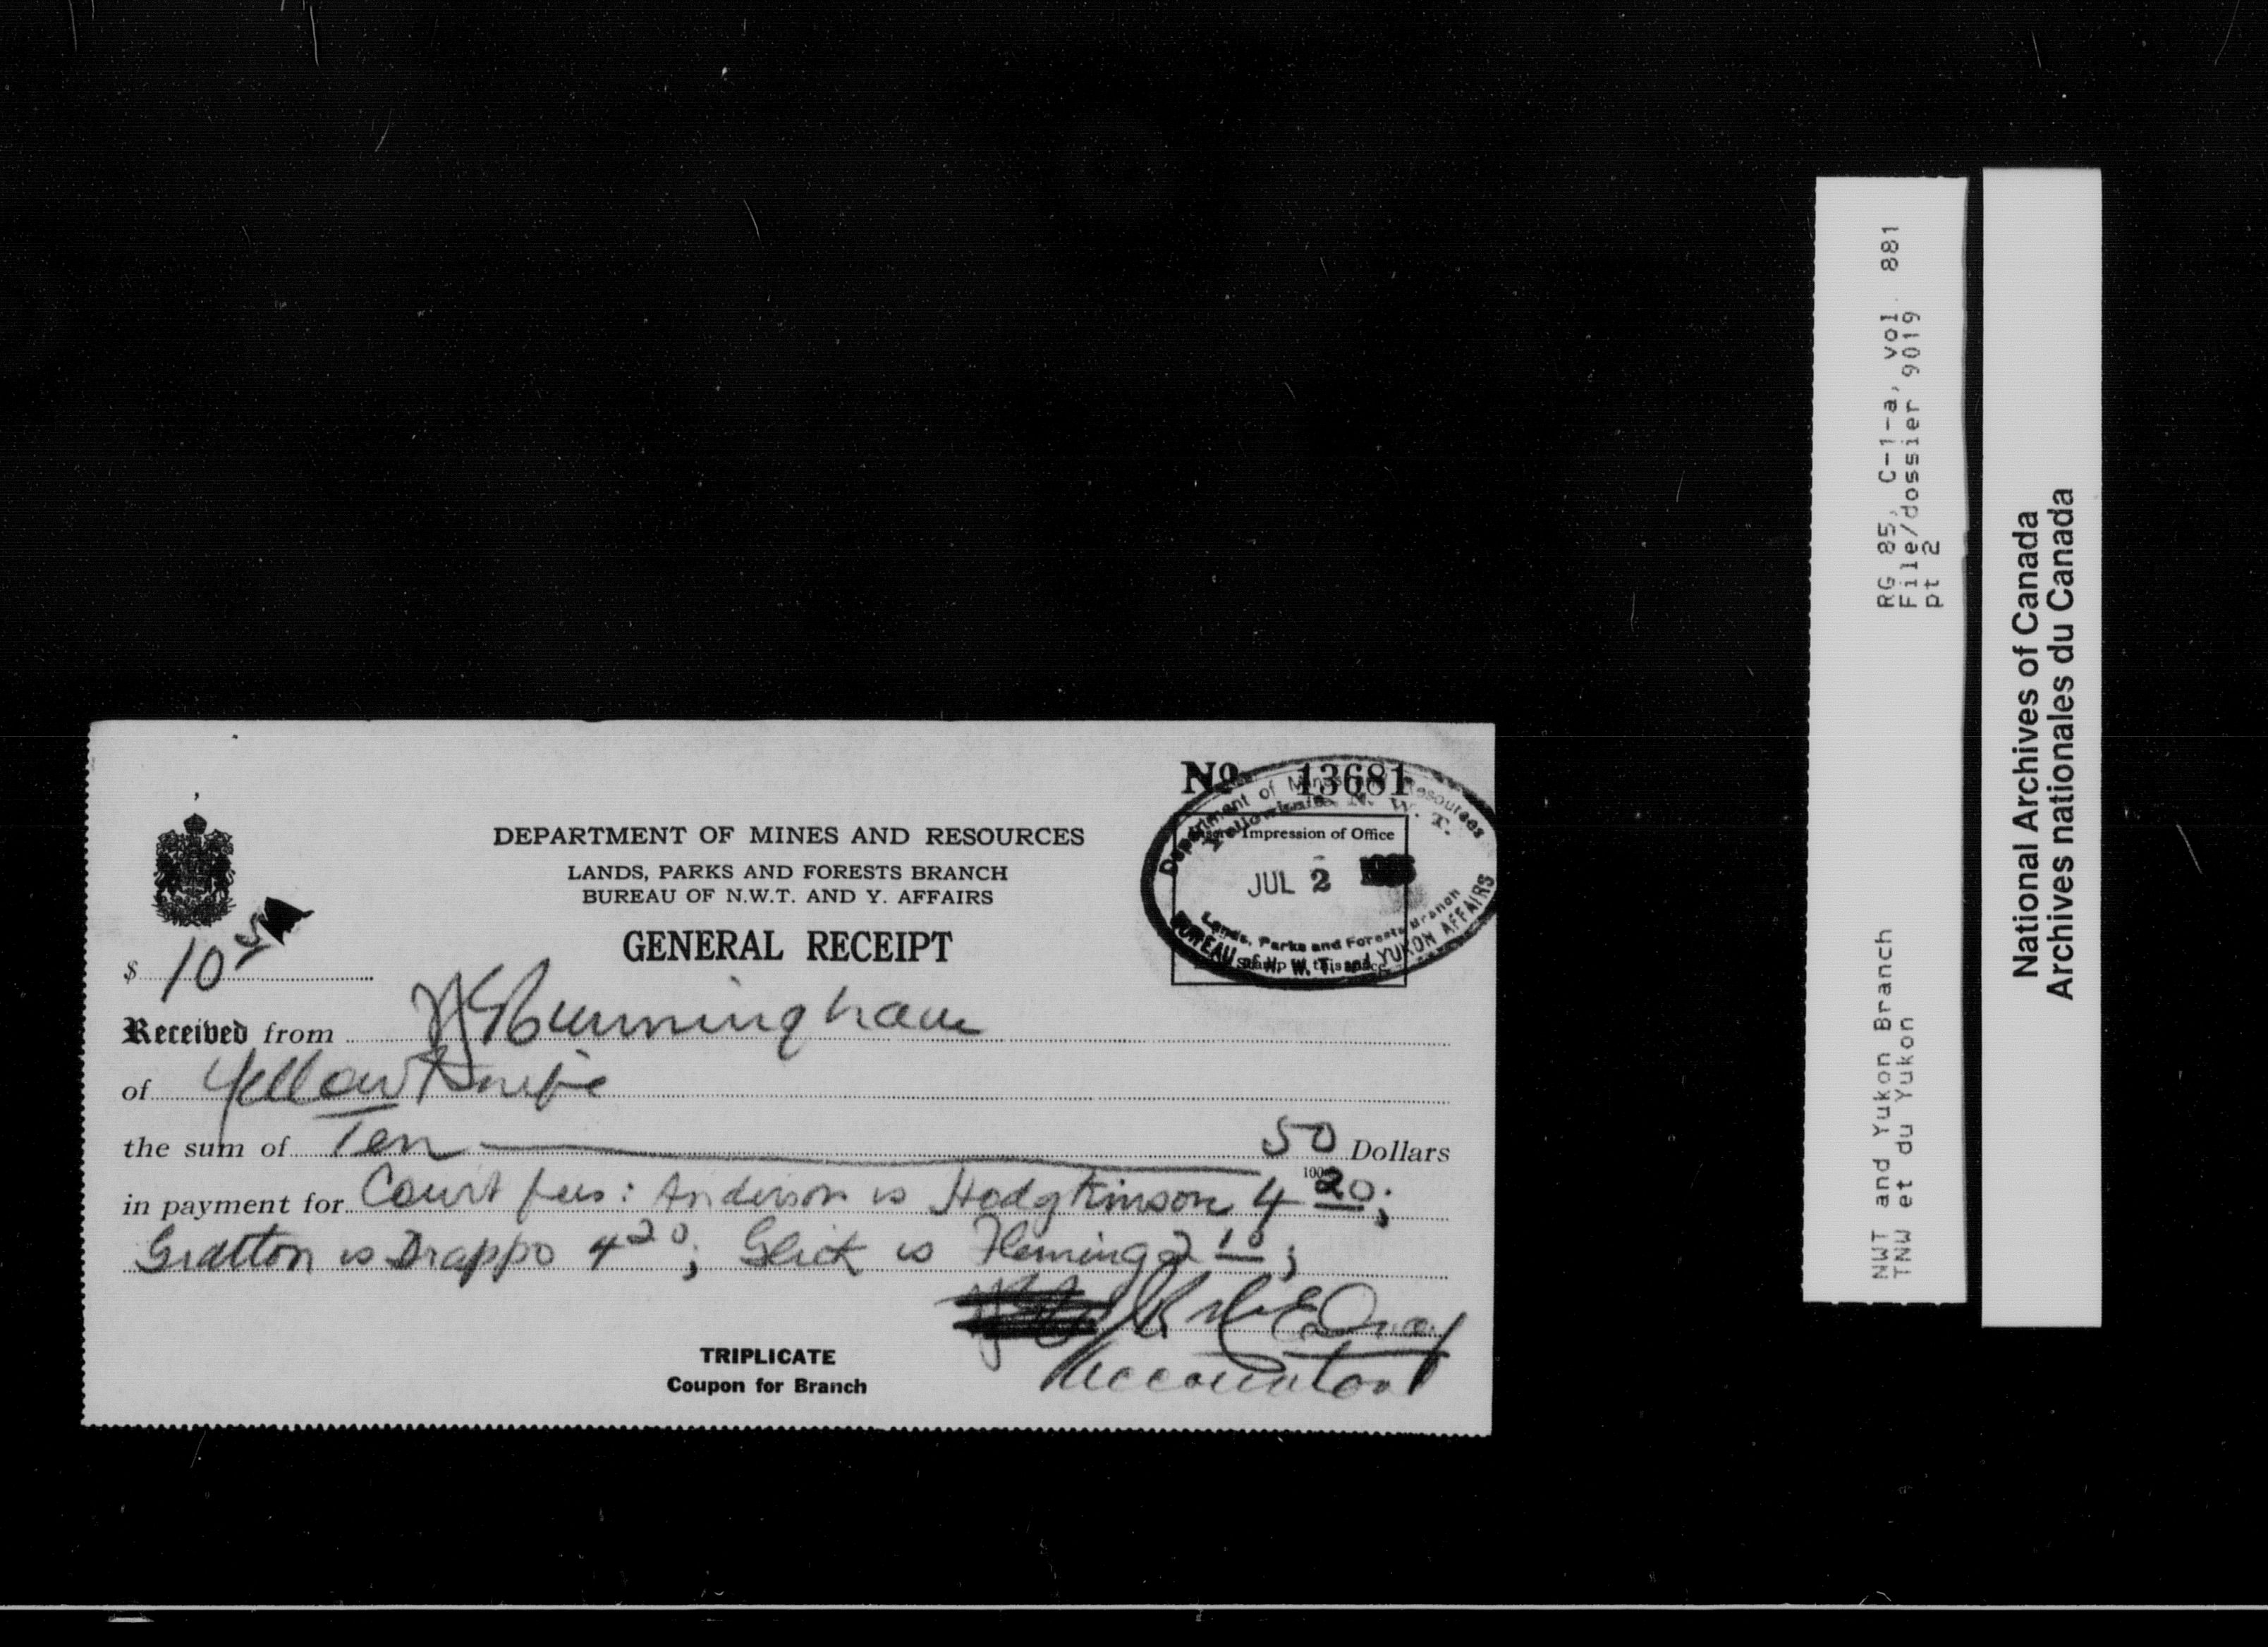 Nº 13681
DEPARTMENT OF MINES AND RESOURCES
LANDS, PARKS AND FORESTS BRANCH
BUREAU OF N.W.T. AND Y. AFFAIRS
GENERAL RECEIPT
Department of Mines Resources
Yellowknife, N. W. T.
Impression of Office
JUL 2
Lands, Parks and Forests Branch
BUREAU of N. W. T. and YUKON AFFAIRS
$ 10 50
Received from Cunningham
of Yellowknife
the sum of Ten 50 Dollars
100
in payment for Court fees: Anderson vs Hodgkinson 4 20;
Gratton vs Drappo 4 20; Glick vs Fleming 2 10;
Accountant
TRIPLICATE
Coupon for Branch
RG 85, C-1-a, vol. 881
File/dossier 9019
pt 2
NWT and Yukon Branch
TNW et du Yukon
National Archives of Canada
Archives nationales du Canada